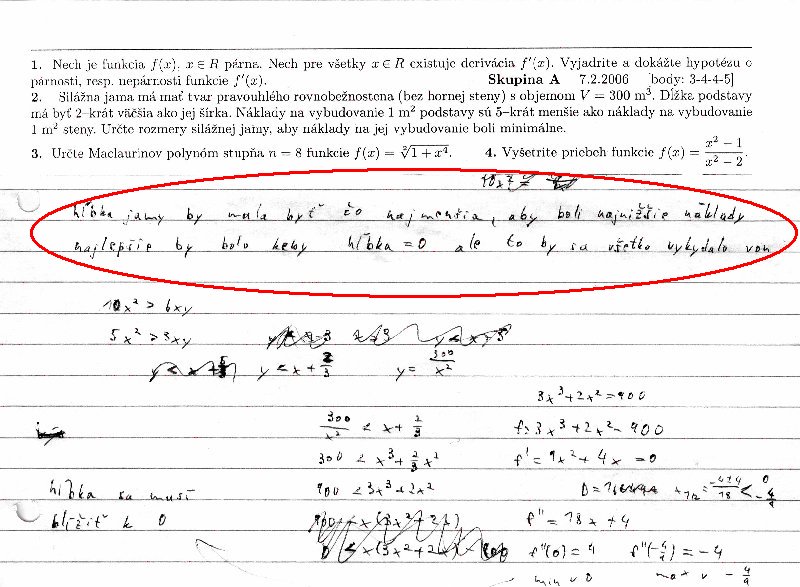 1. Nech je funkcia f(x), x ∈ R párna. Nech pre všetky x ∈ R existuje derivácia f'(x). Vyjadrite a dokážte hypotézu o
párnosti, resp. nepárnosti funkcie f'(x). Skupina A 7.2.2006 [body: 3-4-4-5]
2. Silážna jama má mať tvar pravouhlého rovnobežnostena (bez hornej steny) s objemom V = 300 m³. Dĺžka podstavy
má byť 2–krát väčšia ako jej šírka. Náklady na vybudovanie 1 m² podstavy sú 5–krát menšie ako náklady na vybudovanie
1 m² steny. Určte rozmery silážnej jamy, aby náklady na jej vybudovanie boli minimálne.
3. Určte Maclaurinov polynóm stupňa n = 8 funkcie f(x) = ∛(1 + x⁴). 4. Vyšetrite priebeh funkcie f(x) = (x² − 1)/(x² − 2).
hĺbka jamy by mala byť čo najmenšia, aby boli najnižšie náklady
najlepšie by bolo keby hĺbka = 0 ale to by sa všetko vykydalo von
10x² > 6xy
5x² > 3xy
y < x + 2/3 y = 300/x²
3x³ + 2x² = 900
300/x² < x + 2/3 f: 3x³ + 2x² − 900
300 < x³ + 2/3 x² f' = 9x² + 4x = 0
hĺbka sa musí 900 < 3x³ + 2x²
blížiť k 0 f'' = 18x + 4
f''(0) = 4 f''(−4/9) = −4
min v 0 max v −4/9